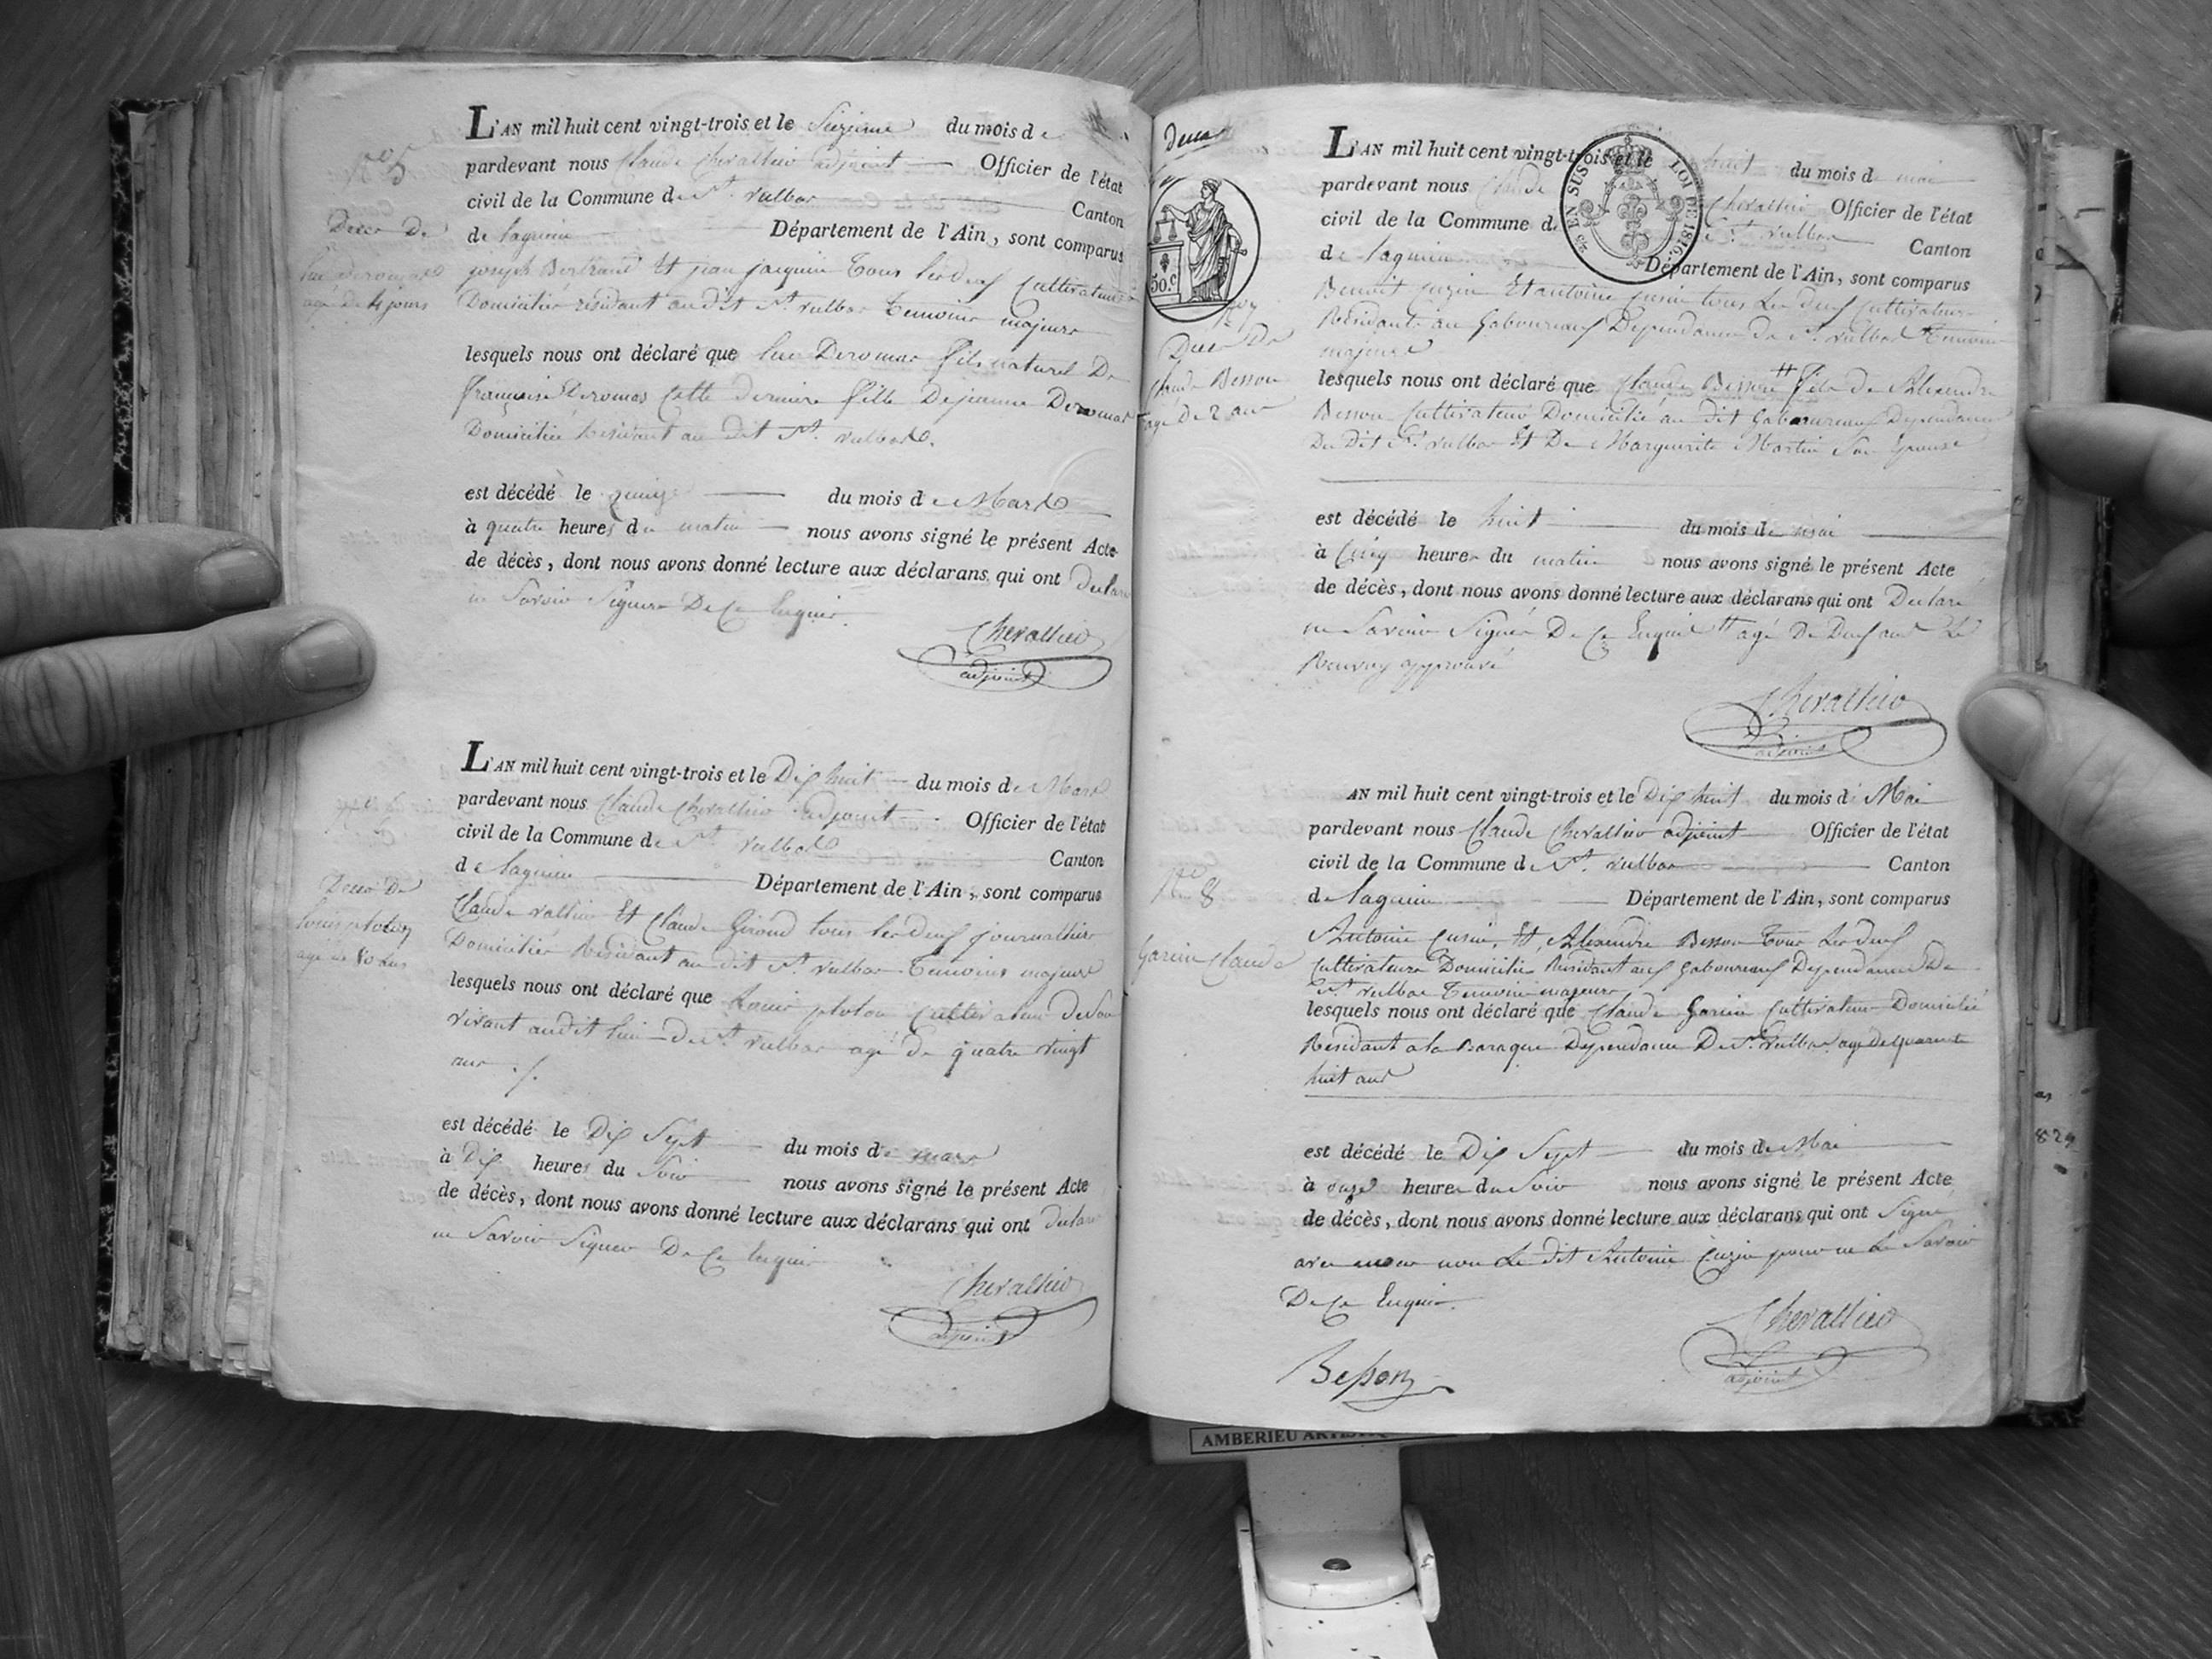 L'AN mil huit cent vingt-trois et le Seizieme du mois de
pardevant nous Claude Chevallier adjoint Officier de l'état
civil de la Commune de St. vulbas Canton
de lagnieu Département de l'Ain, sont comparus
joseph Bertrand Et jean jacquin tous les deux Cultivateurs
Domicilier résidant audit St. vulbas temoins majeurs
lesquels nous ont déclaré que luc Deromas fils naturel De
françoise Deromas Cette derniere fille De jeanne Deromas
Domiciliée Residant au dit St. vulbas.
est décédé le quinze du mois de Mars
à quatre heures du matin nous avons signé le présent Acte
de décès, dont nous avons donné lecture aux déclarans qui ont Declaré
ne Savoir Signer De Ce Enquis.
Chevallier
adjoint
No 5
Deces De
luc Deromas
agé De 4 jours
L'AN mil huit cent vingt-trois et le Dix huit du mois de Mars
pardevant nous Claude Chevallier adjoint Officier de l'état
civil de la Commune de St. vulbas Canton
de lagnieu Département de l'Ain, sont comparus
Claude vallin Et Claude Giroud tous les deux journallier
Domicilier Residant au dit St. vulbas Temoins majeurs
lesquels nous ont déclaré que Louis ploton Cultivateur De Son
vivant audit lieu De St. vulbas agé De quatre vingt
ans ./.
est décédé le Dix Sept du mois de mars
à Dix heures du Soir nous avons signé le présent Acte
de décès, dont nous avons donné lecture aux déclarans qui ont Declaré
ne Savoir Signer De Ce Enquis
Chevallier
adjoint
No 6
Deces De
louis ploton
agé de 80 ans
Deux
EN SUS
LOI DE 1816.
50.c
L'AN mil huit cent vingt-trois et le huit du mois d mai
pardevant nous Claude Chevallier Officier de l'état
civil de la Commune de St. vulbas Canton
de lagnieu Département de l'Ain, sont comparus
Benoit Cuzin Et antoine Cusin tous Les deux Cultivateurs
Résidants au Gaboureaux Dependance De St. vulbas Temoins
majeurs
lesquels nous ont déclaré que Claude Besson # fils De Alexandre
Besson Cultivateur Domicilié au dit Gaboureaux Dependance
Du Dit St. vulbas Et De Marguerite Martin Son Epouse
est décédé le huit du mois de mai
à Cinq heures du matin nous avons signé le présent Acte
de décès, dont nous avons donné lecture aux déclarans qui ont Declaré
ne Savoir Signer De Ce Enquis # agé De Deux ans Le
Renvoy approuvé
Chevallier
adjoint
No 7
Deces De
Claude Besson
agé De 2 ans
AN mil huit cent vingt-trois et le Dix huit du mois d Mai
pardevant nous Claude Chevallier adjoint Officier de l'état
civil de la Commune d St. vulbas Canton
de lagnieu Département de l'Ain, sont comparus
Antoine Cusin, Et, Alexandre Besson Tous Les deux
Cultivateurs Domicilier Residant aux Gaboureaux Dependance De
St. vulbas Temoins majeurs
lesquels nous ont déclaré que Claude Garin Cultivateur Domicilié
Résidant a la Baraque Dependance De St. Vulbas agé De quarante
huit ans
est décédé le Dix Sept du mois de Mai
à onze heures du Soir nous avons signé le présent Acte
de décès, dont nous avons donné lecture aux déclarans qui ont Signé
avec nous non Le dit Antoine Cuzin pour ne Le Savoir
De Ce Enquis.
Chevallier
adjoint
Besson
No 8
Garin Claude
829
AMBERIEU